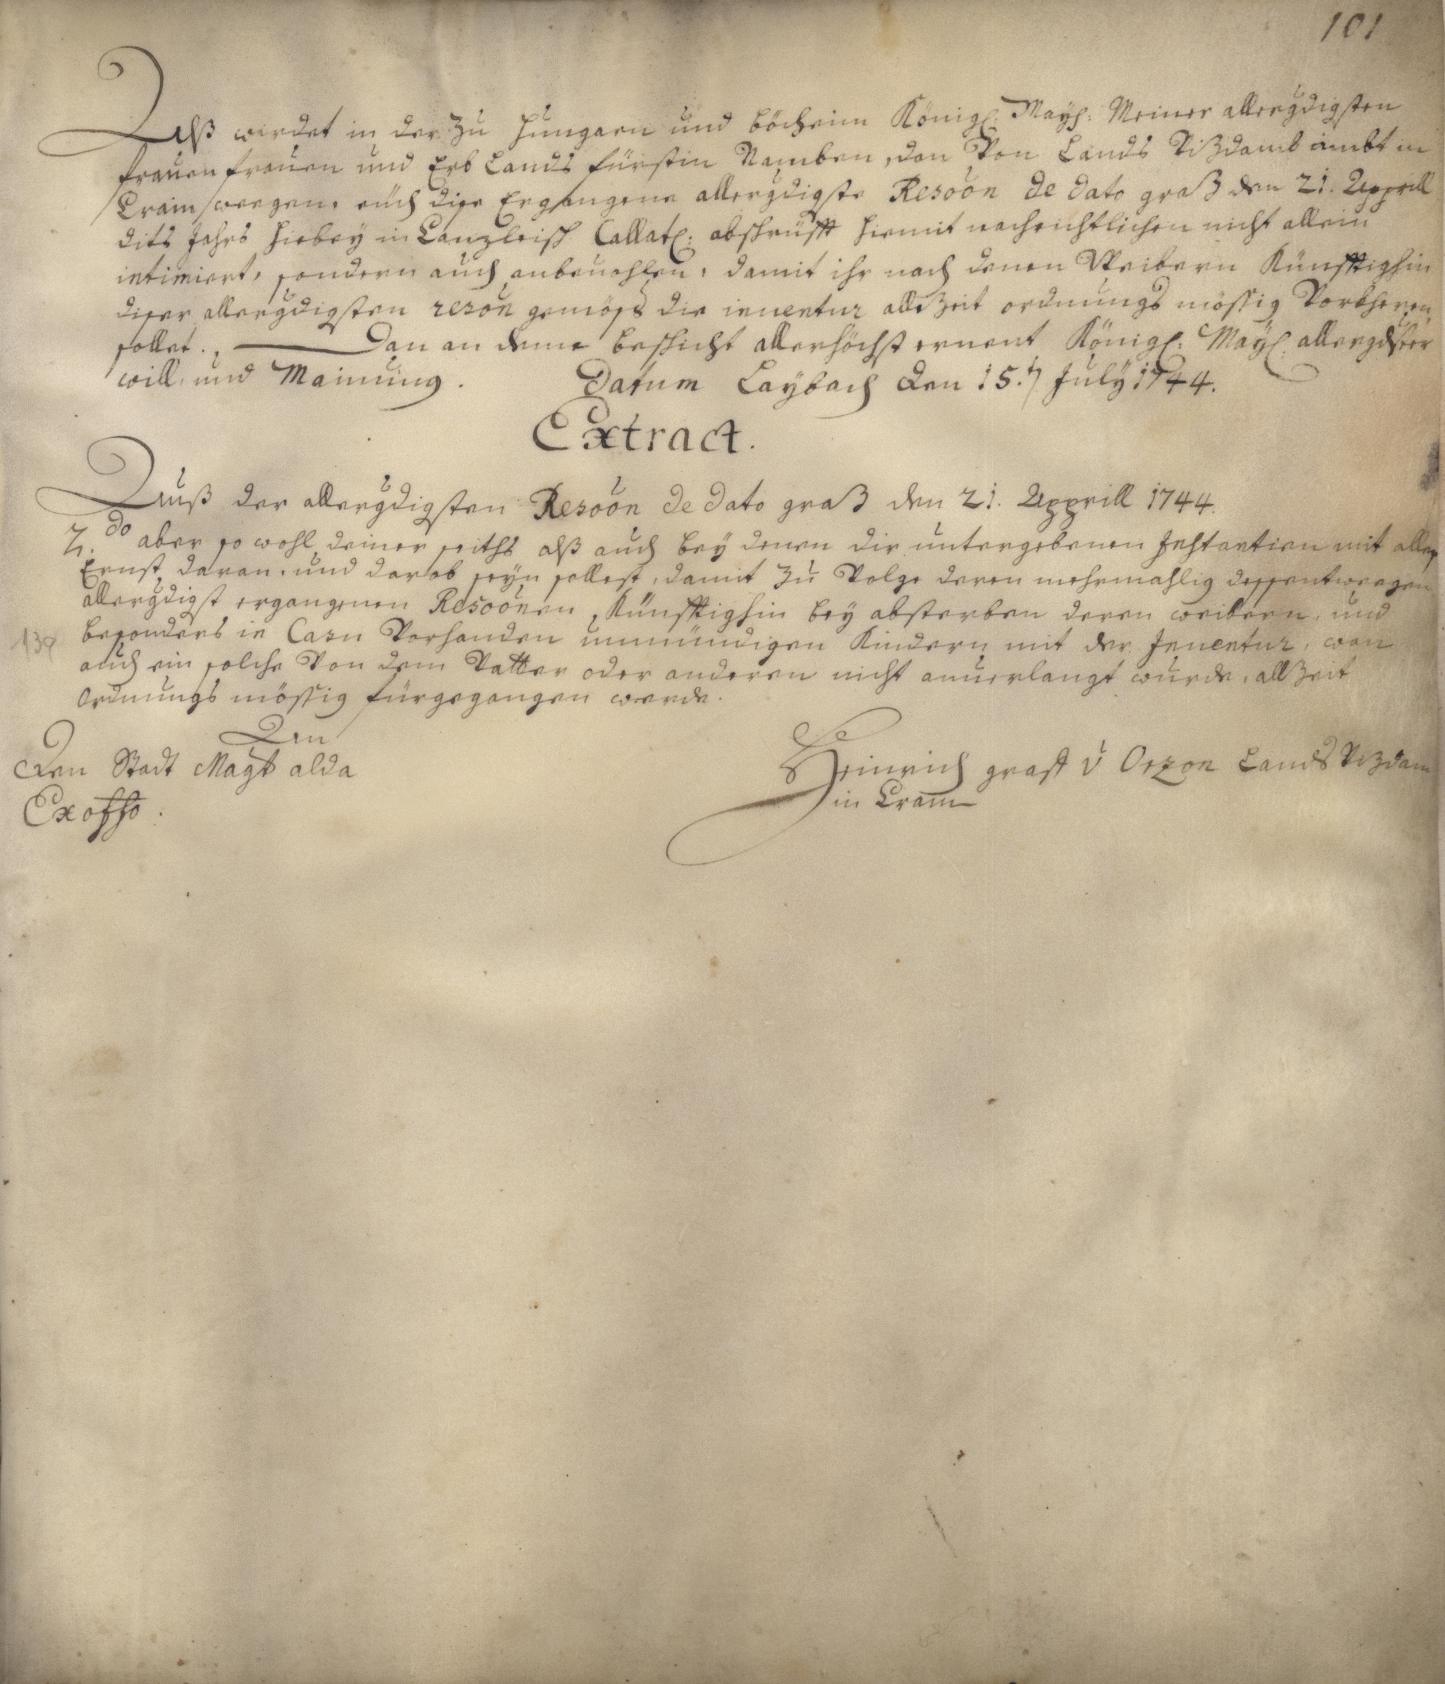 101
Eß wirdet in der Zu Hungarn und Böcheim Königl: Mays: Meiner allergdigsten
frauen frauen und Erb Lands fürstin Namben, dan Von Lands Vizdomb ambt in
Crain weegen, eüch dise Ergangene allergdigste Resoon de dato graß den 21. Apprill
dits Jahrs hiebey in Canzleisch Callatl: abschrüfft hiemit nachrichtlichen nicht allein
intimiert, sondern auch anbeuohlen, damit ihr nach denen Weibern Künfftighin
diser allergdigsten reson gemöß die inuentur alle Zeit ordnungs mössig Vorkheren
sollet. Dan an deme beschicht allerhöchst ernent Königl: Mayl: allergdster
will, und Mainung. Datum Laybach den 15. July 1744.
Extract.
Auß der allergdigsten Resoon de dato graß den 21. Apprill 1744.
2.do aber so wohl deiner seiths alß auch bey denen dir untergebenen Instantien mit allen
Ernst daran, und darob seyn sollest, damit Zu Volge deren mehrmahlig dessentweegen
allergdigst ergangenen Resoonen, Künfftighin bey absterben deren weibern, und
besonders in Casu Vorhanden unmündigen Kindern mit der Inuentur, wan
139
auch ein solche Von dem Vatter oder anderen nicht anuerlangt wurde, all Zeit
ordnungs mössig fürgegangen werde.
Den
Den Stadt Magt alda
Ex offo.
Heinrich graff v Orzon Lands Vizdom
in Crain